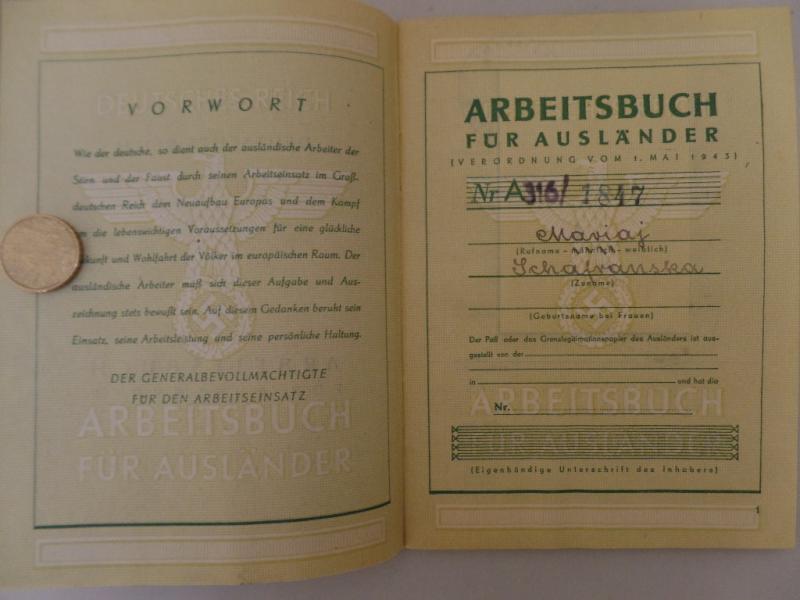 DEUTSCHES REICH
VORWORT
Wie der deutsche, so dient auch der ausländische Arbeiter der
Stirn und der Faust durch seinen Arbeitseinsatz im Groß-
deutschen Reich dem Neuaufbau Europas und dem Kampf
um die lebenswichtigen Voraussetzungen für eine glückliche
Zukunft und Wohlfahrt der Völker im europäischen Raum. Der
ausländische Arbeiter muß sich dieser Aufgabe und Aus-
zeichnung stets bewußt sein. Auf diesem Gedanken beruht sein
Einsatz, seine Arbeitsleistung und seine persönliche Haltung.
DER GENERALBEVOLLMÄCHTIGTE
FÜR DEN ARBEITSEINSATZ
ARBEITSBUCH
FÜR AUSLÄNDER
ARBEITSBUCH
FÜR AUSLÄNDER
(VERORDNUNG VOM 1. MAI 1943)
Nr A316/ 1847
Mariaj
(Rufname - männlich - weiblich)
Schafranska
(Zuname)
(Geburtsname bei Frauen)
Der Paß oder das Grenzlegitimationspapier des Ausländers ist aus-
gestellt von der
in und hat die
Nr.
ARBEITSBUCH
FÜR AUSLÄNDER
(Eigenhändige Unterschrift des Inhabers)
1